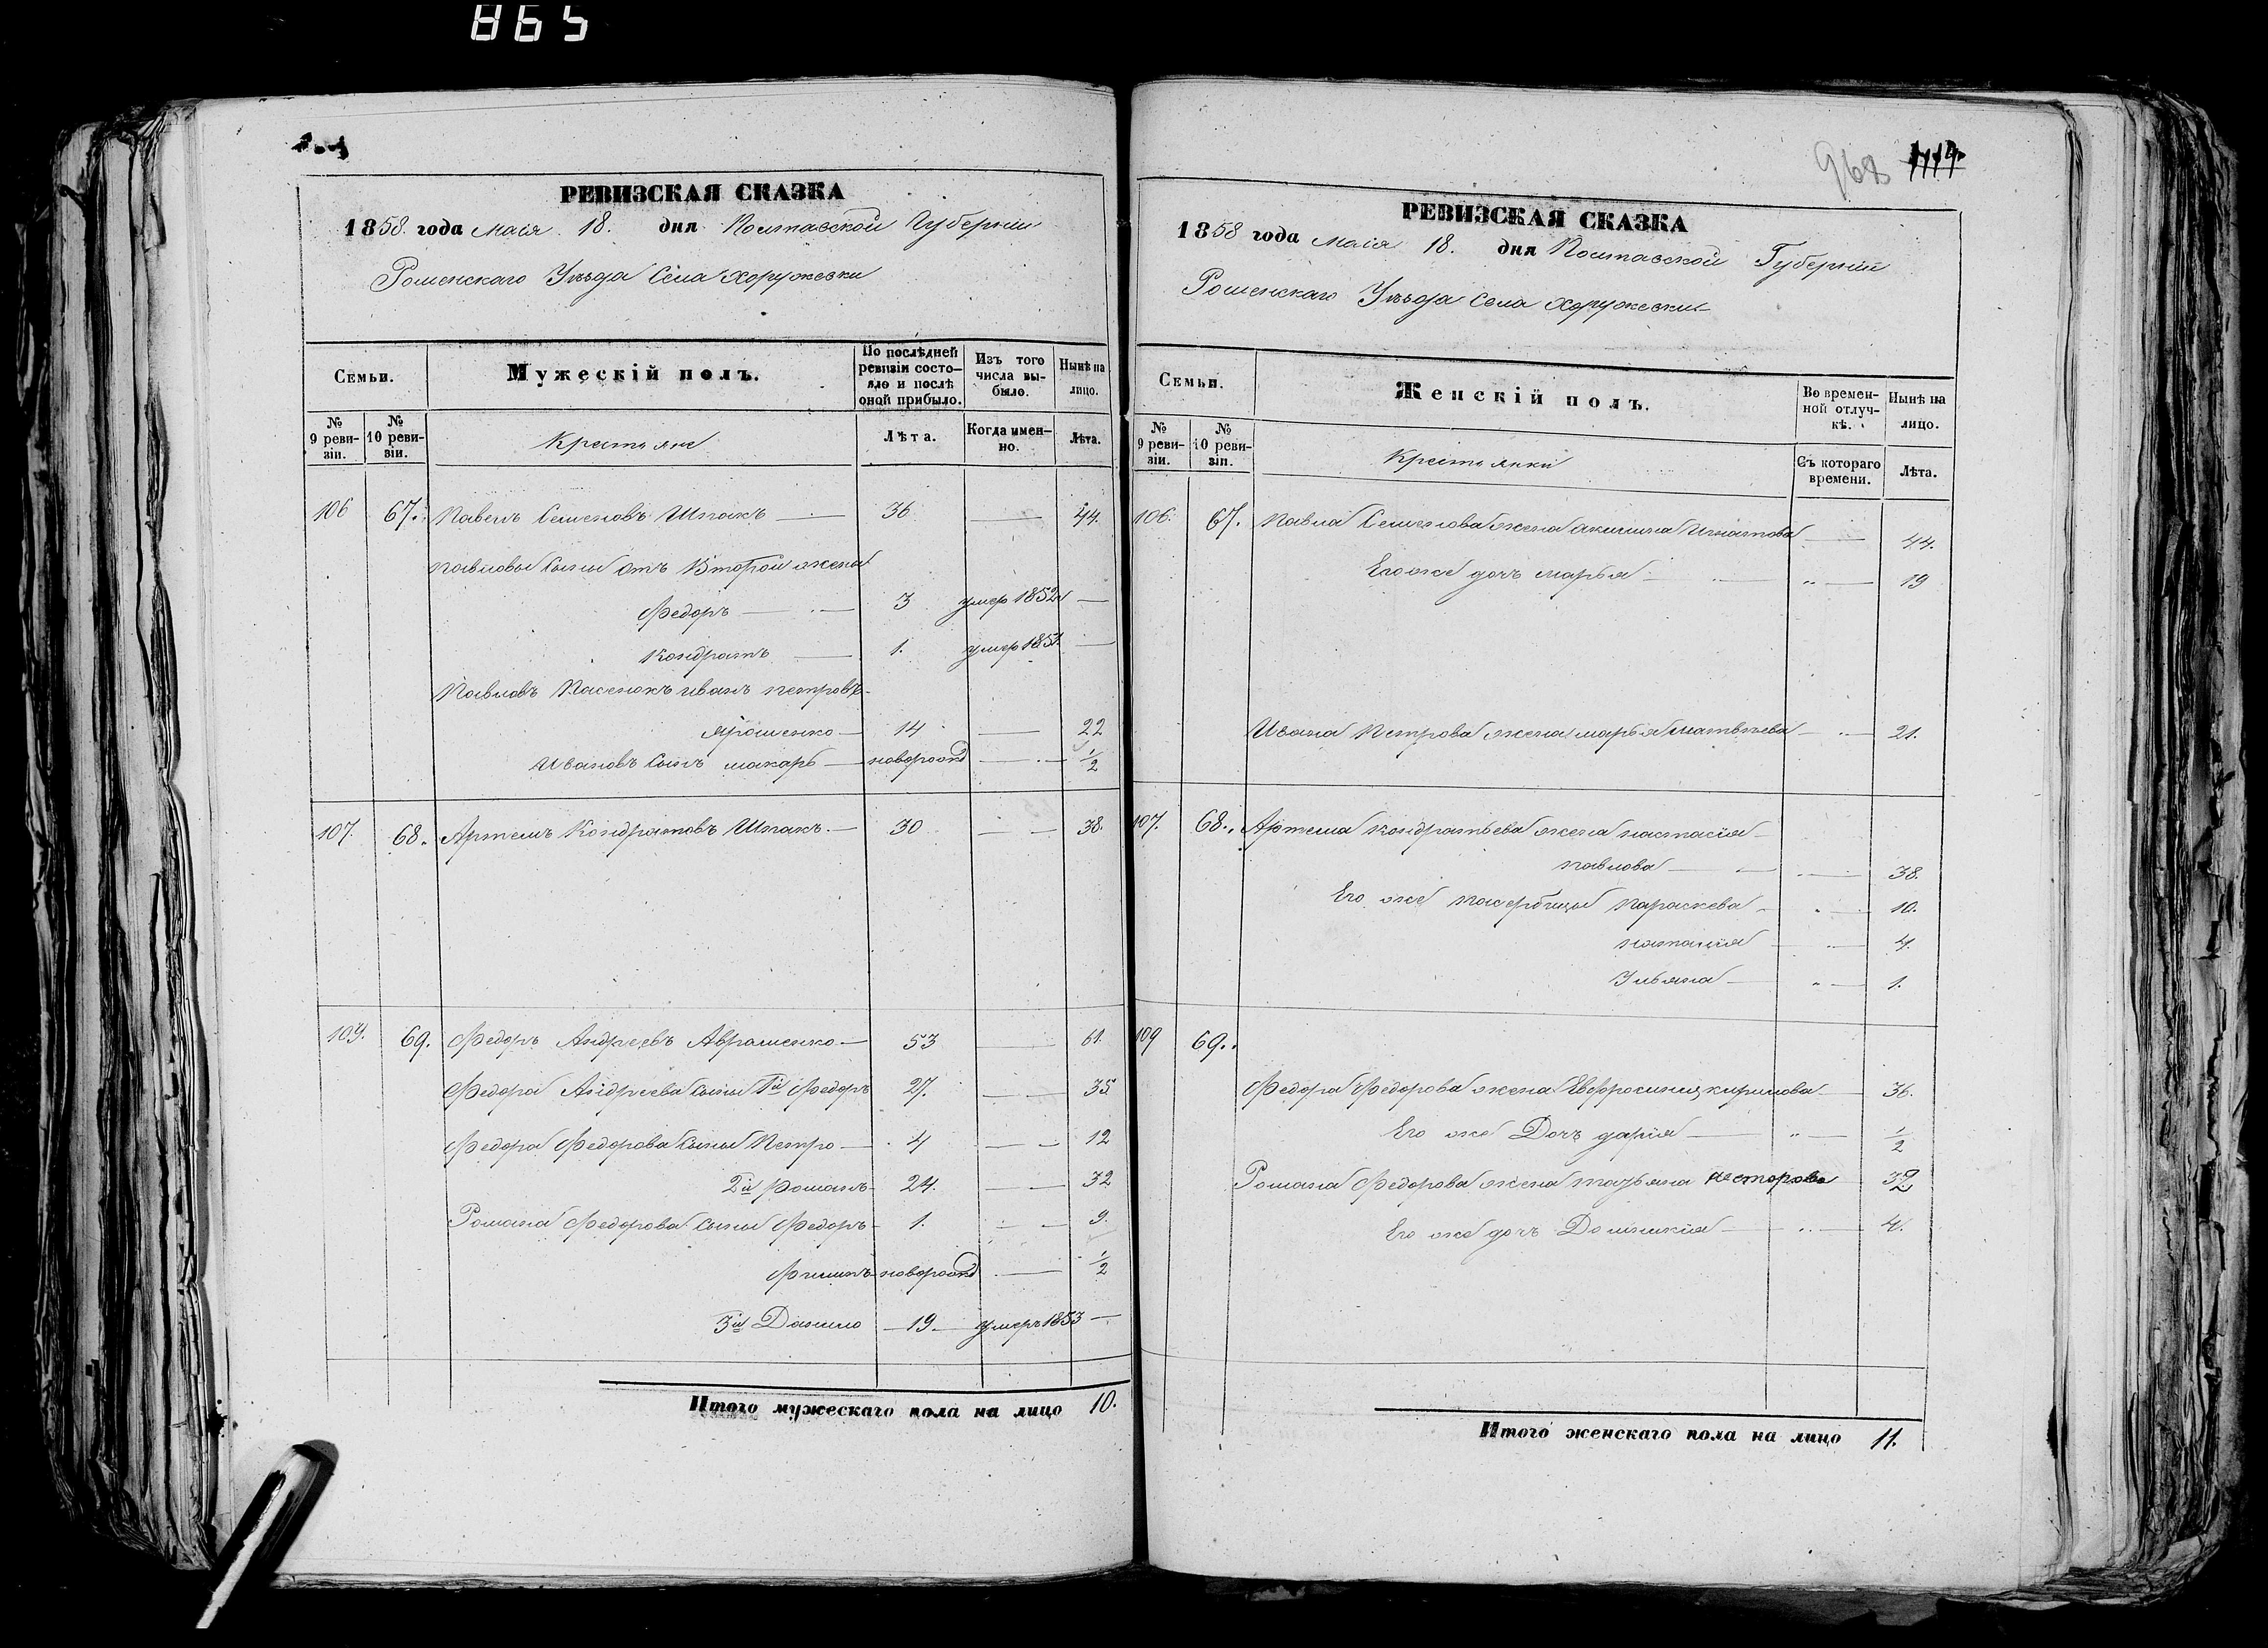 865
РЕВИЗСКАЯ СКАЗКА
1858. года Маія 18. дня Полтавской Губерніи
Роменскаго Уѣзда Села Хоружевки
Семьи.
Мужескій полъ.
По послѣдней ревизіи состо-
яло и послѣ
оной прибыло.
Изъ того
числа вы-
было.
Нынѣ на
лицо.
№
9 реви-
зіи.
№
10 реви-
зіи.
Крестьяне
Лѣта.
Когда имен-
но.
Лѣта.
106 67. Павелъ Семеновъ Шпакъ — 36 — 44.
Павловы Сыны отъ Второй жены
Федоръ — 3 умер 1852 —
Кондратъ — 1. умер 1853. —
Павловъ Пасенокъ иванъ петровъ
Ярошенко — 14 — 22
Ивановъ Сынъ макаръ — новорожд — 1/2
107. 68. Артемъ Кондратовъ Шпакъ. — 30 — 38.
109. 69. Федоръ Андреевъ Авраменко — 53 — 61.
Федора Андреева Сыны 1й Федоръ 27. — 35
Федора Федорова Сыны Петро — 4 — 12
2й Романъ 24. — 32
Романа Федорова Сыны Федоръ 1. — 9.
Филипъ новорожд — 1/2
3й Данило — 19 — умеръ 1853 —
Итого мужескаго пола на лицо 10.
968
РЕВИЗСКАЯ СКАЗКА
1858 года Маія 18. дня Полтавской Губерніи
Роменскаго Уѣзда Села Хоружевки
Семьи.
Женскій полъ.
Во времен-
ной отлуч-
кѣ.
Нынѣ на
лицо.
№
9 реви-
зіи.
№
10 реви-
зіи.
Крестьянки
Съ котораго
времени.
Лѣта.
106. 67. Павла Семенова жена акилина Игнатова — 44.
Его же дочь марья — „ — 19
Ивана Петрова жена марья матвѣева — „ — 21.
107. 68. Артема кондратьева жена настасія
павлова — 38.
Его же пасербицы параскева — „ — 10.
наталія — „ — 4.
Ульяна — „ — 1.
109 69.
Федора Федорова жена Евфросинія кирилова — 36.
Его же Дочь дарія — „ — 1/2
Романа Федорова жена татьяна несторова 32
Его же дочь Домникія — „ — 4.
Итого женскаго пола на лицо 11.